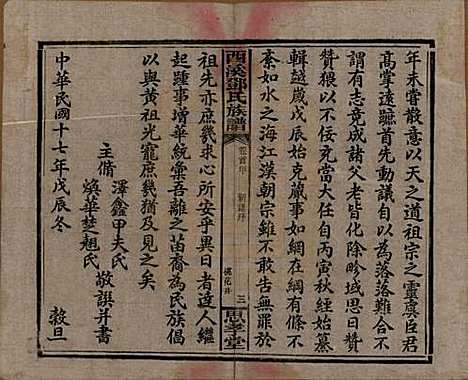 年未嘗散意以天之道祖宗之靈冀臣君
高掌遠蹠首先動議自以為落落難合
謂有志竟成諸父老皆化除畛域思日贊
贊猥以不佞充當大任自丙寅秋經始纂
輯越歲戊辰始克蕆事如綱在綱有條不
紊如水之海江漢朝宗雖不敢告無罪於
西溪鄧氏族譜
卷首序
三
思孝堂
祖先亦庶幾求心所安乎異日者達人繼
起踵事增華統彙吾離之苗裔為民族倡
以與黃祖光寵庶幾猶及見之矣
主脩
澤鑫甲夫氏
煥華楚翹氏
敬譔并書
中華民國十七年戊辰冬
穀旦